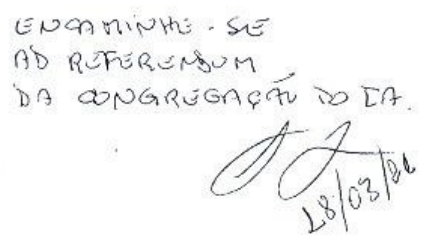 ENCAMINHE-SE
AD REFERENDUM
DA CONGREGAÇÃO DO IA.
28/03/